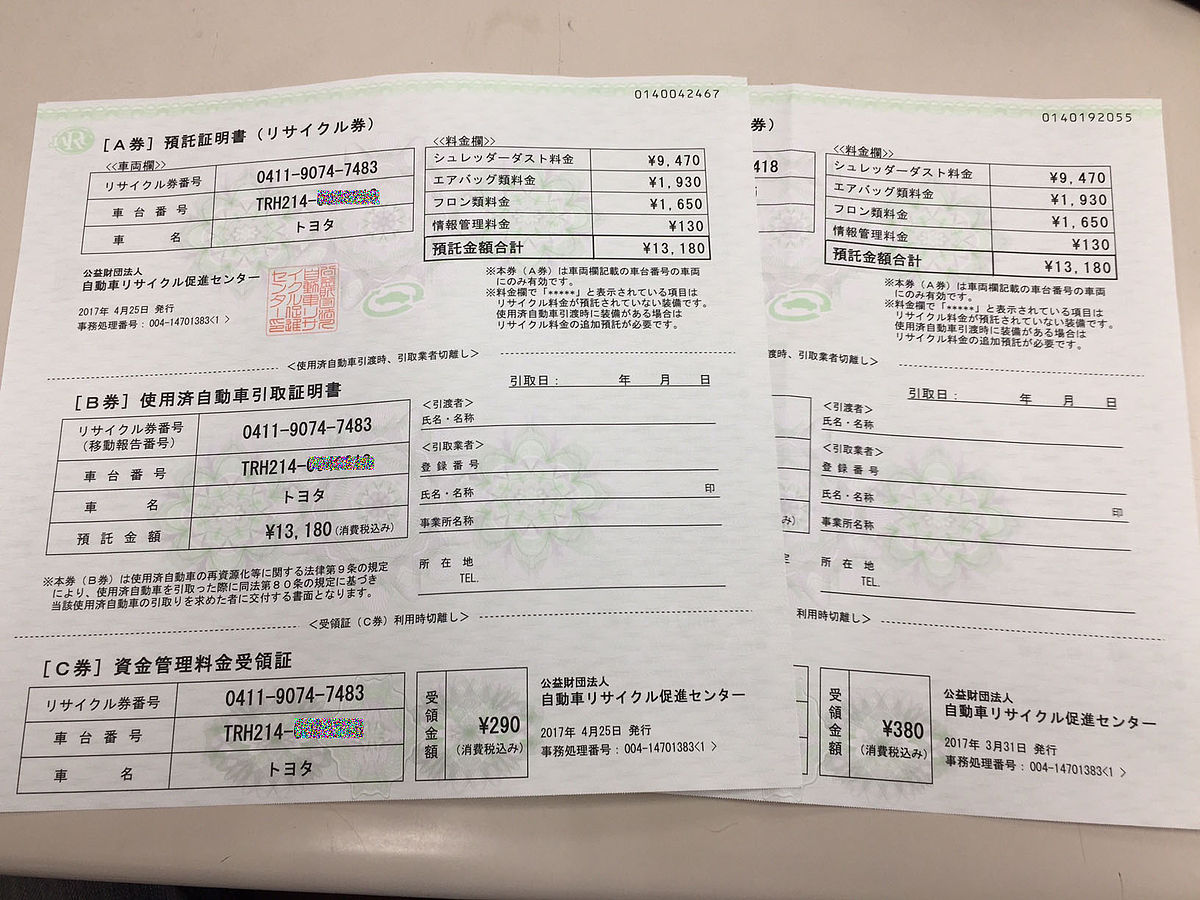 0140042467
[A券] 預託証明書 (リサイクル券)
<<車両欄>>
リサイクル券番号 0411-9074-7483
車台番号 TRH214-
車名 トヨタ
<<料金欄>>
シュレッダーダスト料金 ¥9,470
エアバッグ類料金 ¥1,930
フロン類料金 ¥1,650
情報管理料金 ¥130
預託金額合計 ¥13,180
公益財団法人
自動車リサイクル促進センター
2017年 4月25日 発行
事務処理番号:004-14701383<1 >
※本券(A券)は車両欄記載の車台番号の車両
にのみ有効です。
※料金欄で「*****」と表示されている項目は
リサイクル料金が預託されていない装備です。
使用済自動車引渡時に装備がある場合は
リサイクル料金の追加預託が必要です。
<使用済自動車引渡時、引取業者切離し>
[B券] 使用済自動車引取証明書
リサイクル券番号
(移動報告番号) 0411-9074-7483
車台番号 TRH214-
車名 トヨタ
預託金額 ¥13,180(消費税込み)
※本券(B券)は使用済自動車の再資源化等に関する法律第9条の規定
により、使用済自動車を引取った際に同法第80条の規定に基づき
当該使用済自動車の引取りを求めた者に交付する書面となります。
引取日: 年 月 日
<引渡者>
氏名・名称
<引取業者>
登録番号
氏名・名称 印
事業所名称
所在地
TEL.
<受領証(C券)利用時切離し>
[C券] 資金管理料金受領証
リサイクル券番号 0411-9074-7483
車台番号 TRH214-
車名 トヨタ
受領金額 ¥290
(消費税込み)
公益財団法人
自動車リサイクル促進センター
2017年 4月25日 発行
事務処理番号:004-14701383<1 >
0140192055
券)
418
<<料金欄>>
シュレッダーダスト料金 ¥9,470
エアバッグ類料金 ¥1,930
フロン類料金 ¥1,650
情報管理料金 ¥130
預託金額合計 ¥13,180
※本券(A券)は車両欄記載の車台番号の車両
にのみ有効です。
※料金欄で「*****」と表示されている項目は
リサイクル料金が預託されていない装備です。
使用済自動車引渡時に装備がある場合は
リサイクル料金の追加預託が必要です。
渡時、引取業者切離し>
引取日: 年 月 日
<引渡者>
氏名・名称
<引取業者>
登録番号
氏名・名称 印
事業所名称
み)
所在地
TEL.
利用時切離し>
受領金額 ¥380
(消費税込み)
公益財団法人
自動車リサイクル促進センター
2017年 3月31日 発行
事務処理番号:004-14701383<1 >